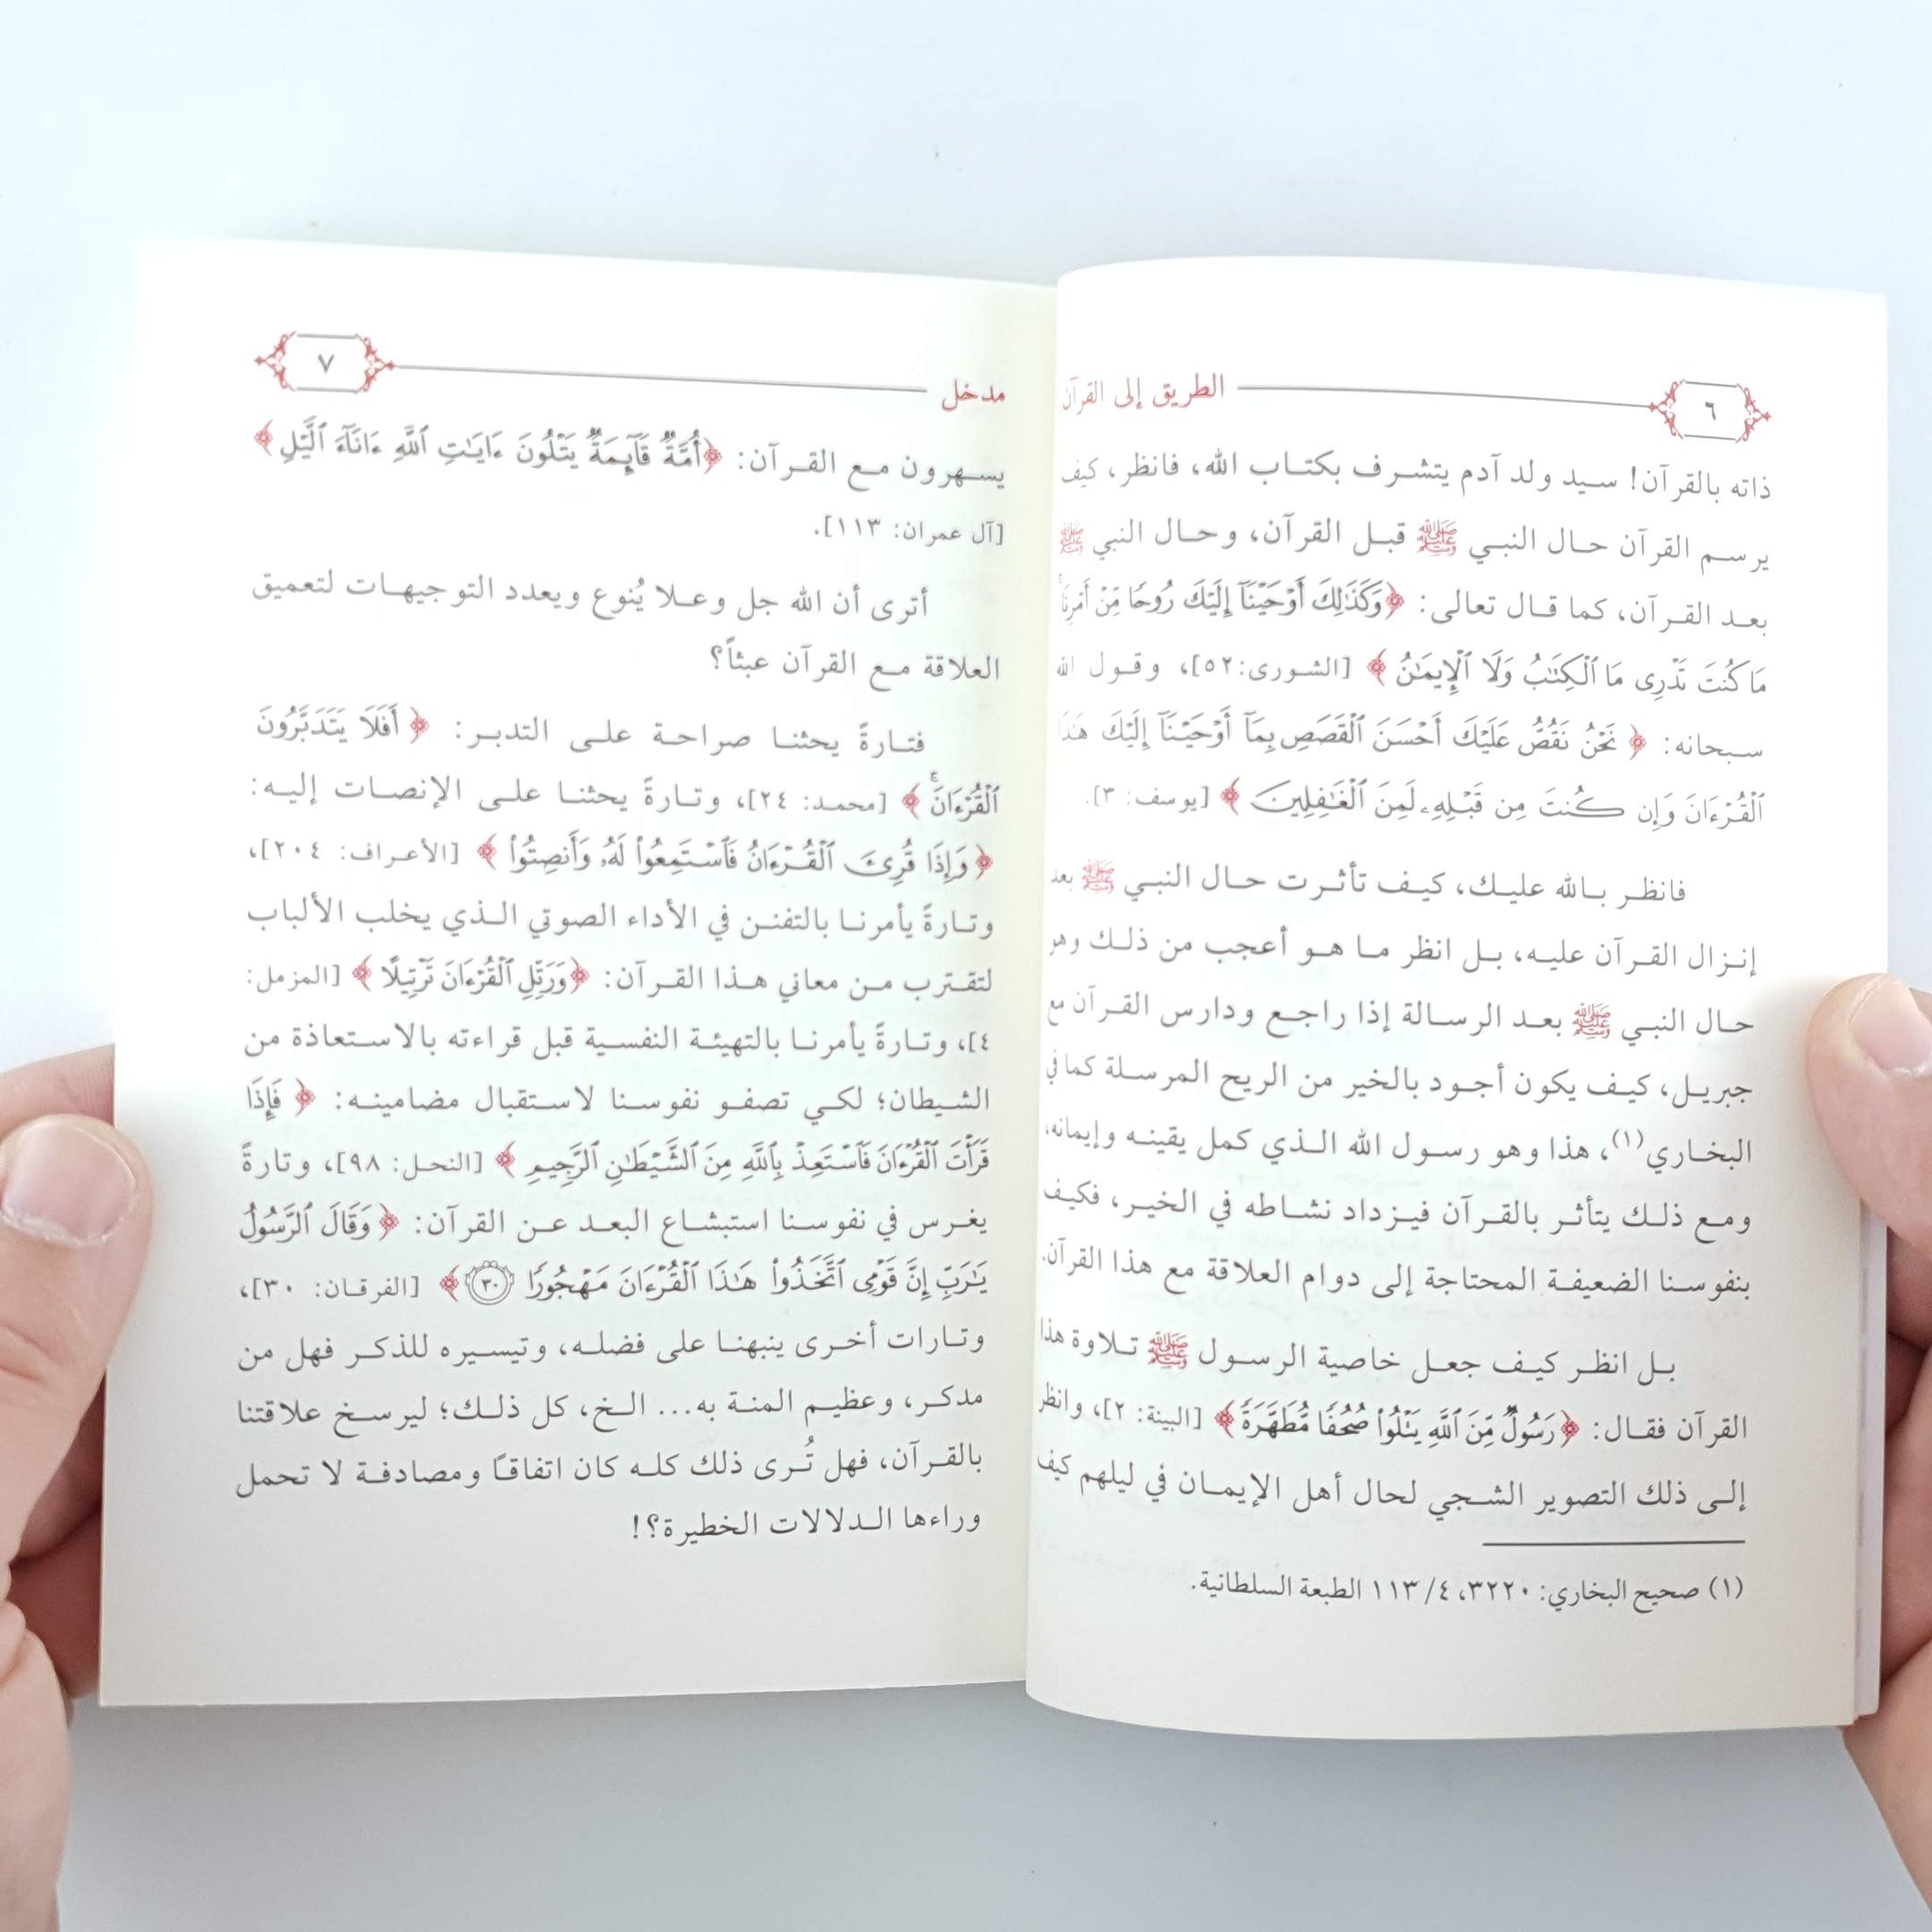 ٦ الطريق إلى القرآن
ذاته بالقرآن! سيد ولد آدم يتشرف بكتاب الله، فانظر، كيف
يرسم القرآن حال النبي ﷺ قبل القرآن، وحال النبي ﷺ
بعد القرآن، كما قال تعالى: ﴿وَكَذَٰلِكَ أَوْحَيْنَآ إِلَيْكَ رُوحًا مِّنْ أَمْرِنَاۚ
مَا كُنتَ تَدْرِى مَا ٱلْكِتَٰبُ وَلَا ٱلْإِيمَٰنُ﴾ [الشورى: ٥٢]، وقول الله
سبحانه: ﴿نَحْنُ نَقُصُّ عَلَيْكَ أَحْسَنَ ٱلْقَصَصِ بِمَآ أَوْحَيْنَآ إِلَيْكَ هَٰذَا
ٱلْقُرْءَانَ وَإِن كُنتَ مِن قَبْلِهِۦ لَمِنَ ٱلْغَٰفِلِينَ﴾ [يوسف: ٣].
فانظر بالله عليك، كيف تأثرت حال النبي ﷺ بعد
إنزال القرآن عليه، بل انظر ما هو أعجب من ذلك وهو
حال النبي ﷺ بعد الرسالة إذا راجع ودارس القرآن مع
جبريل، كيف يكون أجود بالخير من الريح المرسلة كما في
البخاري(١)، هذا وهو رسول الله الذي كمل يقينه وإيمانه،
ومع ذلك يتأثر بالقرآن فيزداد نشاطه في الخير، فكيف
بنفوسنا الضعيفة المحتاجة إلى دوام العلاقة مع هذا القرآن.
بل انظر كيف جعل خاصية الرسول ﷺ تلاوة هذا
القرآن فقال: ﴿رَسُولٌ مِّنَ ٱللَّهِ يَتْلُوا۟ صُحُفًا مُّطَهَّرَةً﴾ [البينة: ٢]، وانظر
إلى ذلك التصوير الشجي لحال أهل الإيمان في ليلهم كيف
(١) صحيح البخاري: ٣٢٢٠، ٤/ ١١٣ الطبعة السلطانية.
مدخل ٧
يسهرون مع القرآن: ﴿أُمَّةٌ قَآئِمَةٌ يَتْلُونَ ءَايَٰتِ ٱللَّهِ ءَانَآءَ ٱلَّيْلِ﴾
[آل عمران: ١١٣].
أترى أن الله جل وعلا يُنوع ويعدد التوجيهات لتعميق
العلاقة مع القرآن عبثاً؟
فتارةً يحثنا صراحة على التدبر: ﴿أَفَلَا يَتَدَبَّرُونَ
ٱلْقُرْءَانَۚ﴾ [محمد: ٢٤]، وتارةً يحثنا على الإنصات إليه:
﴿وَإِذَا قُرِئَ ٱلْقُرْءَانُ فَٱسْتَمِعُوا۟ لَهُۥ وَأَنصِتُوا۟﴾ [الأعراف: ٢٠٤]،
وتارةً يأمرنا بالتفنن في الأداء الصوتي الذي يخلب الألباب
لتقترب من معاني هذا القرآن: ﴿وَرَتِّلِ ٱلْقُرْءَانَ تَرْتِيلًا﴾ [المزمل:
٤]، وتارةً يأمرنا بالتهيئة النفسية قبل قراءته بالاستعاذة من
الشيطان؛ لكي تصفو نفوسنا لاستقبال مضامينه: ﴿فَإِذَا
قَرَأْتَ ٱلْقُرْءَانَ فَٱسْتَعِذْ بِٱللَّهِ مِنَ ٱلشَّيْطَٰنِ ٱلرَّجِيمِ﴾ [النحل: ٩٨]، وتارةً
يغرس في نفوسنا استبشاع البعد عن القرآن: ﴿وَقَالَ ٱلرَّسُولُ
يَٰرَبِّ إِنَّ قَوْمِى ٱتَّخَذُوا۟ هَٰذَا ٱلْقُرْءَانَ مَهْجُورًا ٣٠﴾ [الفرقان: ٣٠]،
وتارات أخرى ينبهنا على فضله، وتيسيره للذكر فهل من
مدكر، وعظيم المنة به... الخ، كل ذلك؛ ليرسخ علاقتنا
بالقرآن، فهل تُرى ذلك كله كان اتفاقًا ومصادفة لا تحمل
وراءها الدلالات الخطيرة؟!